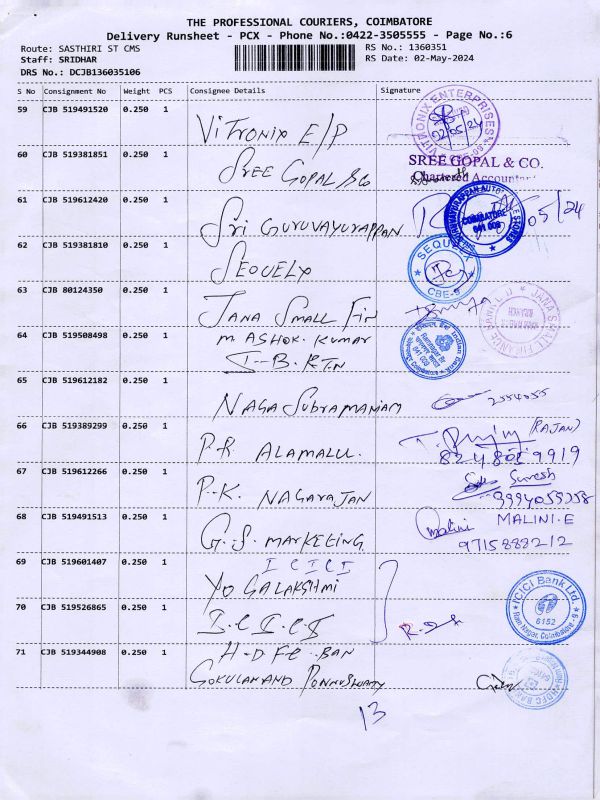 THE PROFESSIONAL COURIERS, COIMBATORE
Delivery Runsheet - PCX - Phone No.:0422-3505555 - Page No.:6
Route: SASTHIRI ST CMS
RS No.: 1360351
Staff: SRIDHAR
RS Date: 02-May-2024
DRS No.: DCJB136035106
S No Consignment No Weight PCS Consignee Details Signature
59 CJB 519491520 0.250 1
VITRONIX E/P
VITRONIX ENTERPRISES
02/05/24
60 CJB 519381851 0.250 1
SREE GOPAL & Co
SREE GOPAL & CO.
Chartered Accountant
61 CJB 519612420 0.250 1
Sri GURUVAYURAPPAN
COIMBATORE
05/24
62 CJB 519381810 0.250 1
SEQUELX
SEQUELX
CBE-9
63 CJB 80124350 0.250 1
JANA SMALL FIN
JANA SMALL FINANCE
64 CJB 519508498 0.250 1
M ASHOK. KUMAR
I-B. R.T.N
Indian Bank
65 CJB 519612182 0.250 1
NAGA SUBRAMANIAM
66 CJB 519389299 0.250 1
P.R. ALAMALU.
(RAJAN)
67 CJB 519612266 0.250 1
P.K. NAGARAJAN
Suresh
68 CJB 519491513 0.250 1
G.S. MARKETING
Malini
MALINI.E
9715888212
69 CJB 519601407 0.250 1
I C I C I
YOGALAKSHMI
70 CJB 519526865 0.250 1
I.C.I.C.I
ICICI Bank Ltd.
6152
Ram Nagar, Coimbatore - 9
71 CJB 519344908 0.250 1
H-D FC BAN
GOKULANAND PONNUSWAMY
HDFC BANK
13